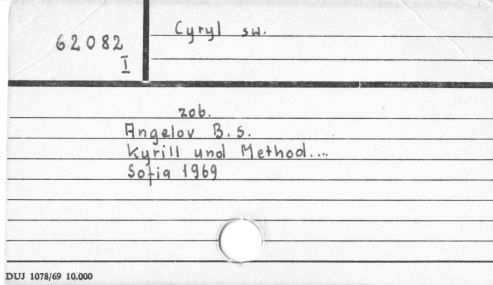 62082
I
Cyryl sw.
zob.
Angelov B.S.
Kyrill und Method...
Sofia 1969
DUJ 1078/69 10.000